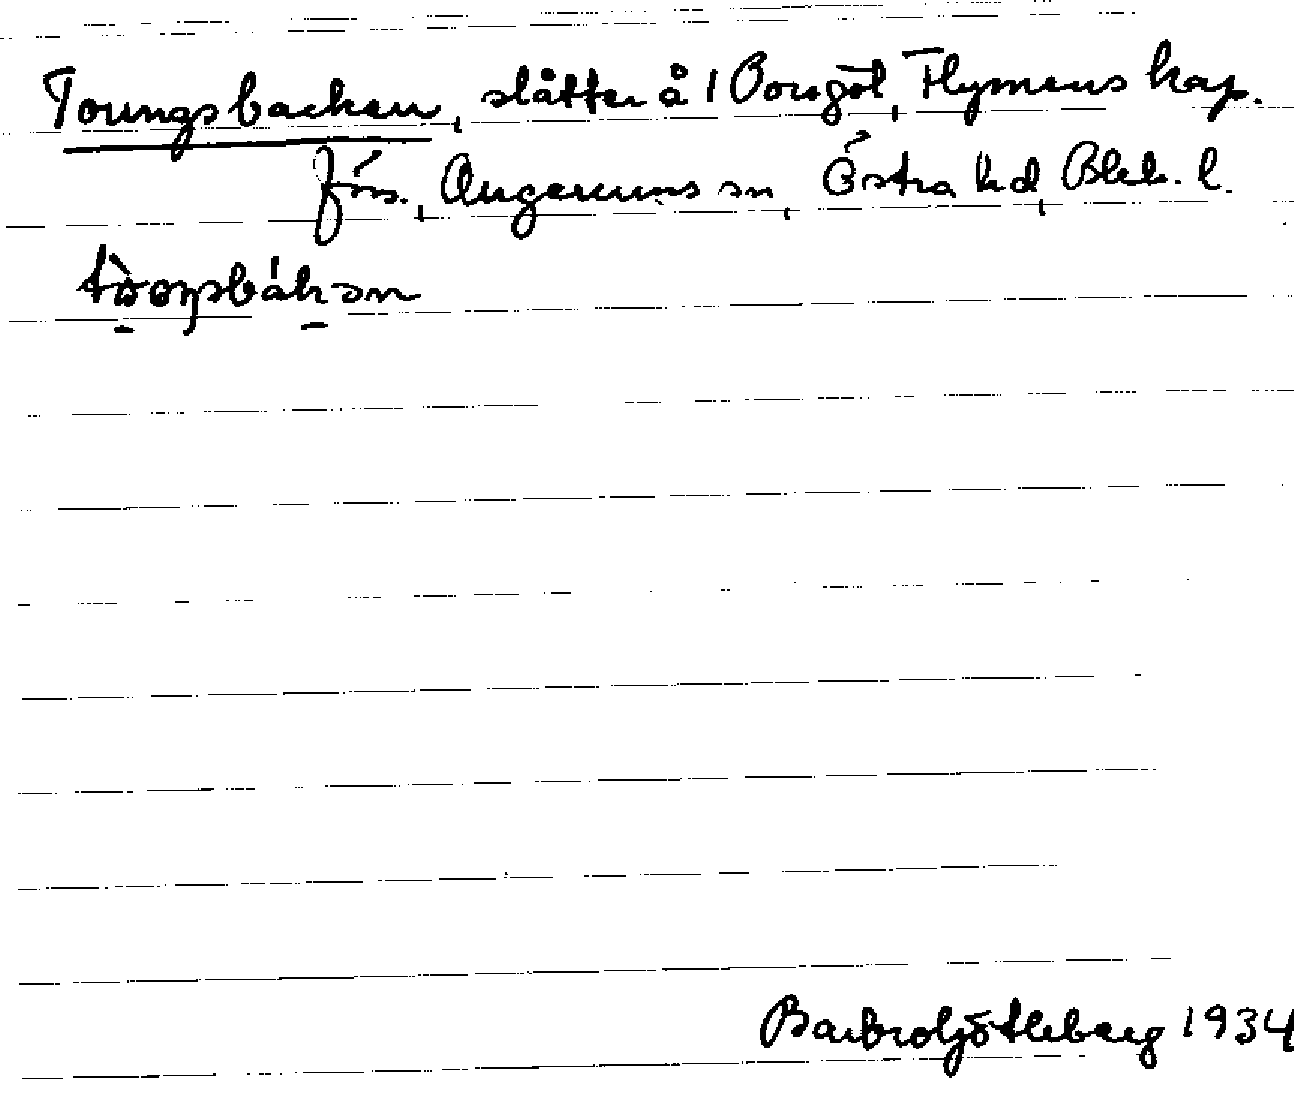 Torngsbacken, slåtter å 1 Borsgöl, Flymens kap.
förs., Augerums sn, Östra hd, Blek. l.
Barbro Götleberg 1934